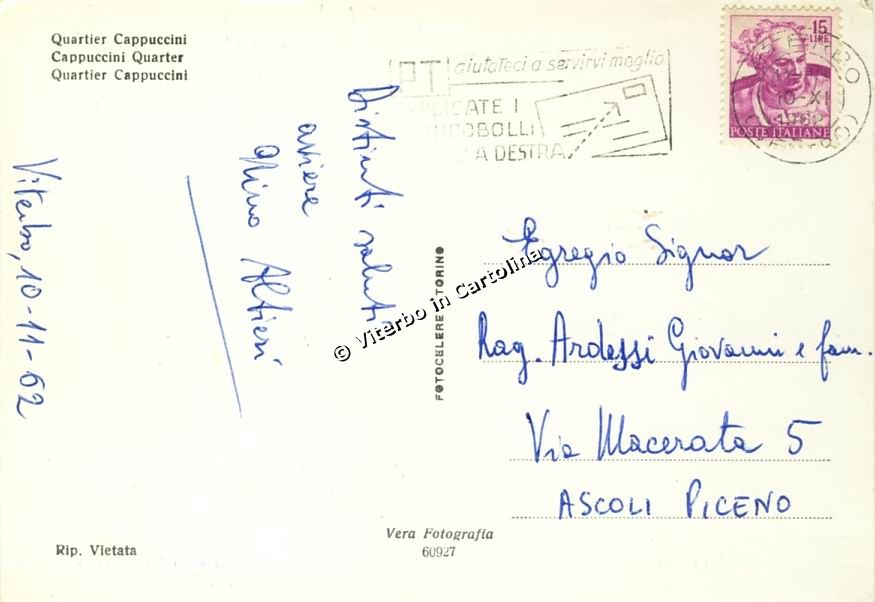 Quartier Cappuccini
Cappuccini Quarter
Quartier Cappuccini
PT aiutateci a servirvi meglio
APPLICATE I
FRANCOBOLLI
A DESTRA
15
LIRE
POSTE ITALIANE
VITERBO
10-XI
1962
Viterbo, 10-11-62
Distinti saluti
aviere
Nino Altieri
© Viterbo in Cartolina
FOTOCELERE TORINO
Egregio Signor
Rag. Ardessi Giovanni e fam.
Via Macerata 5
ASCOLI PICENO
Rip. Vietata
Vera Fotografia
60927